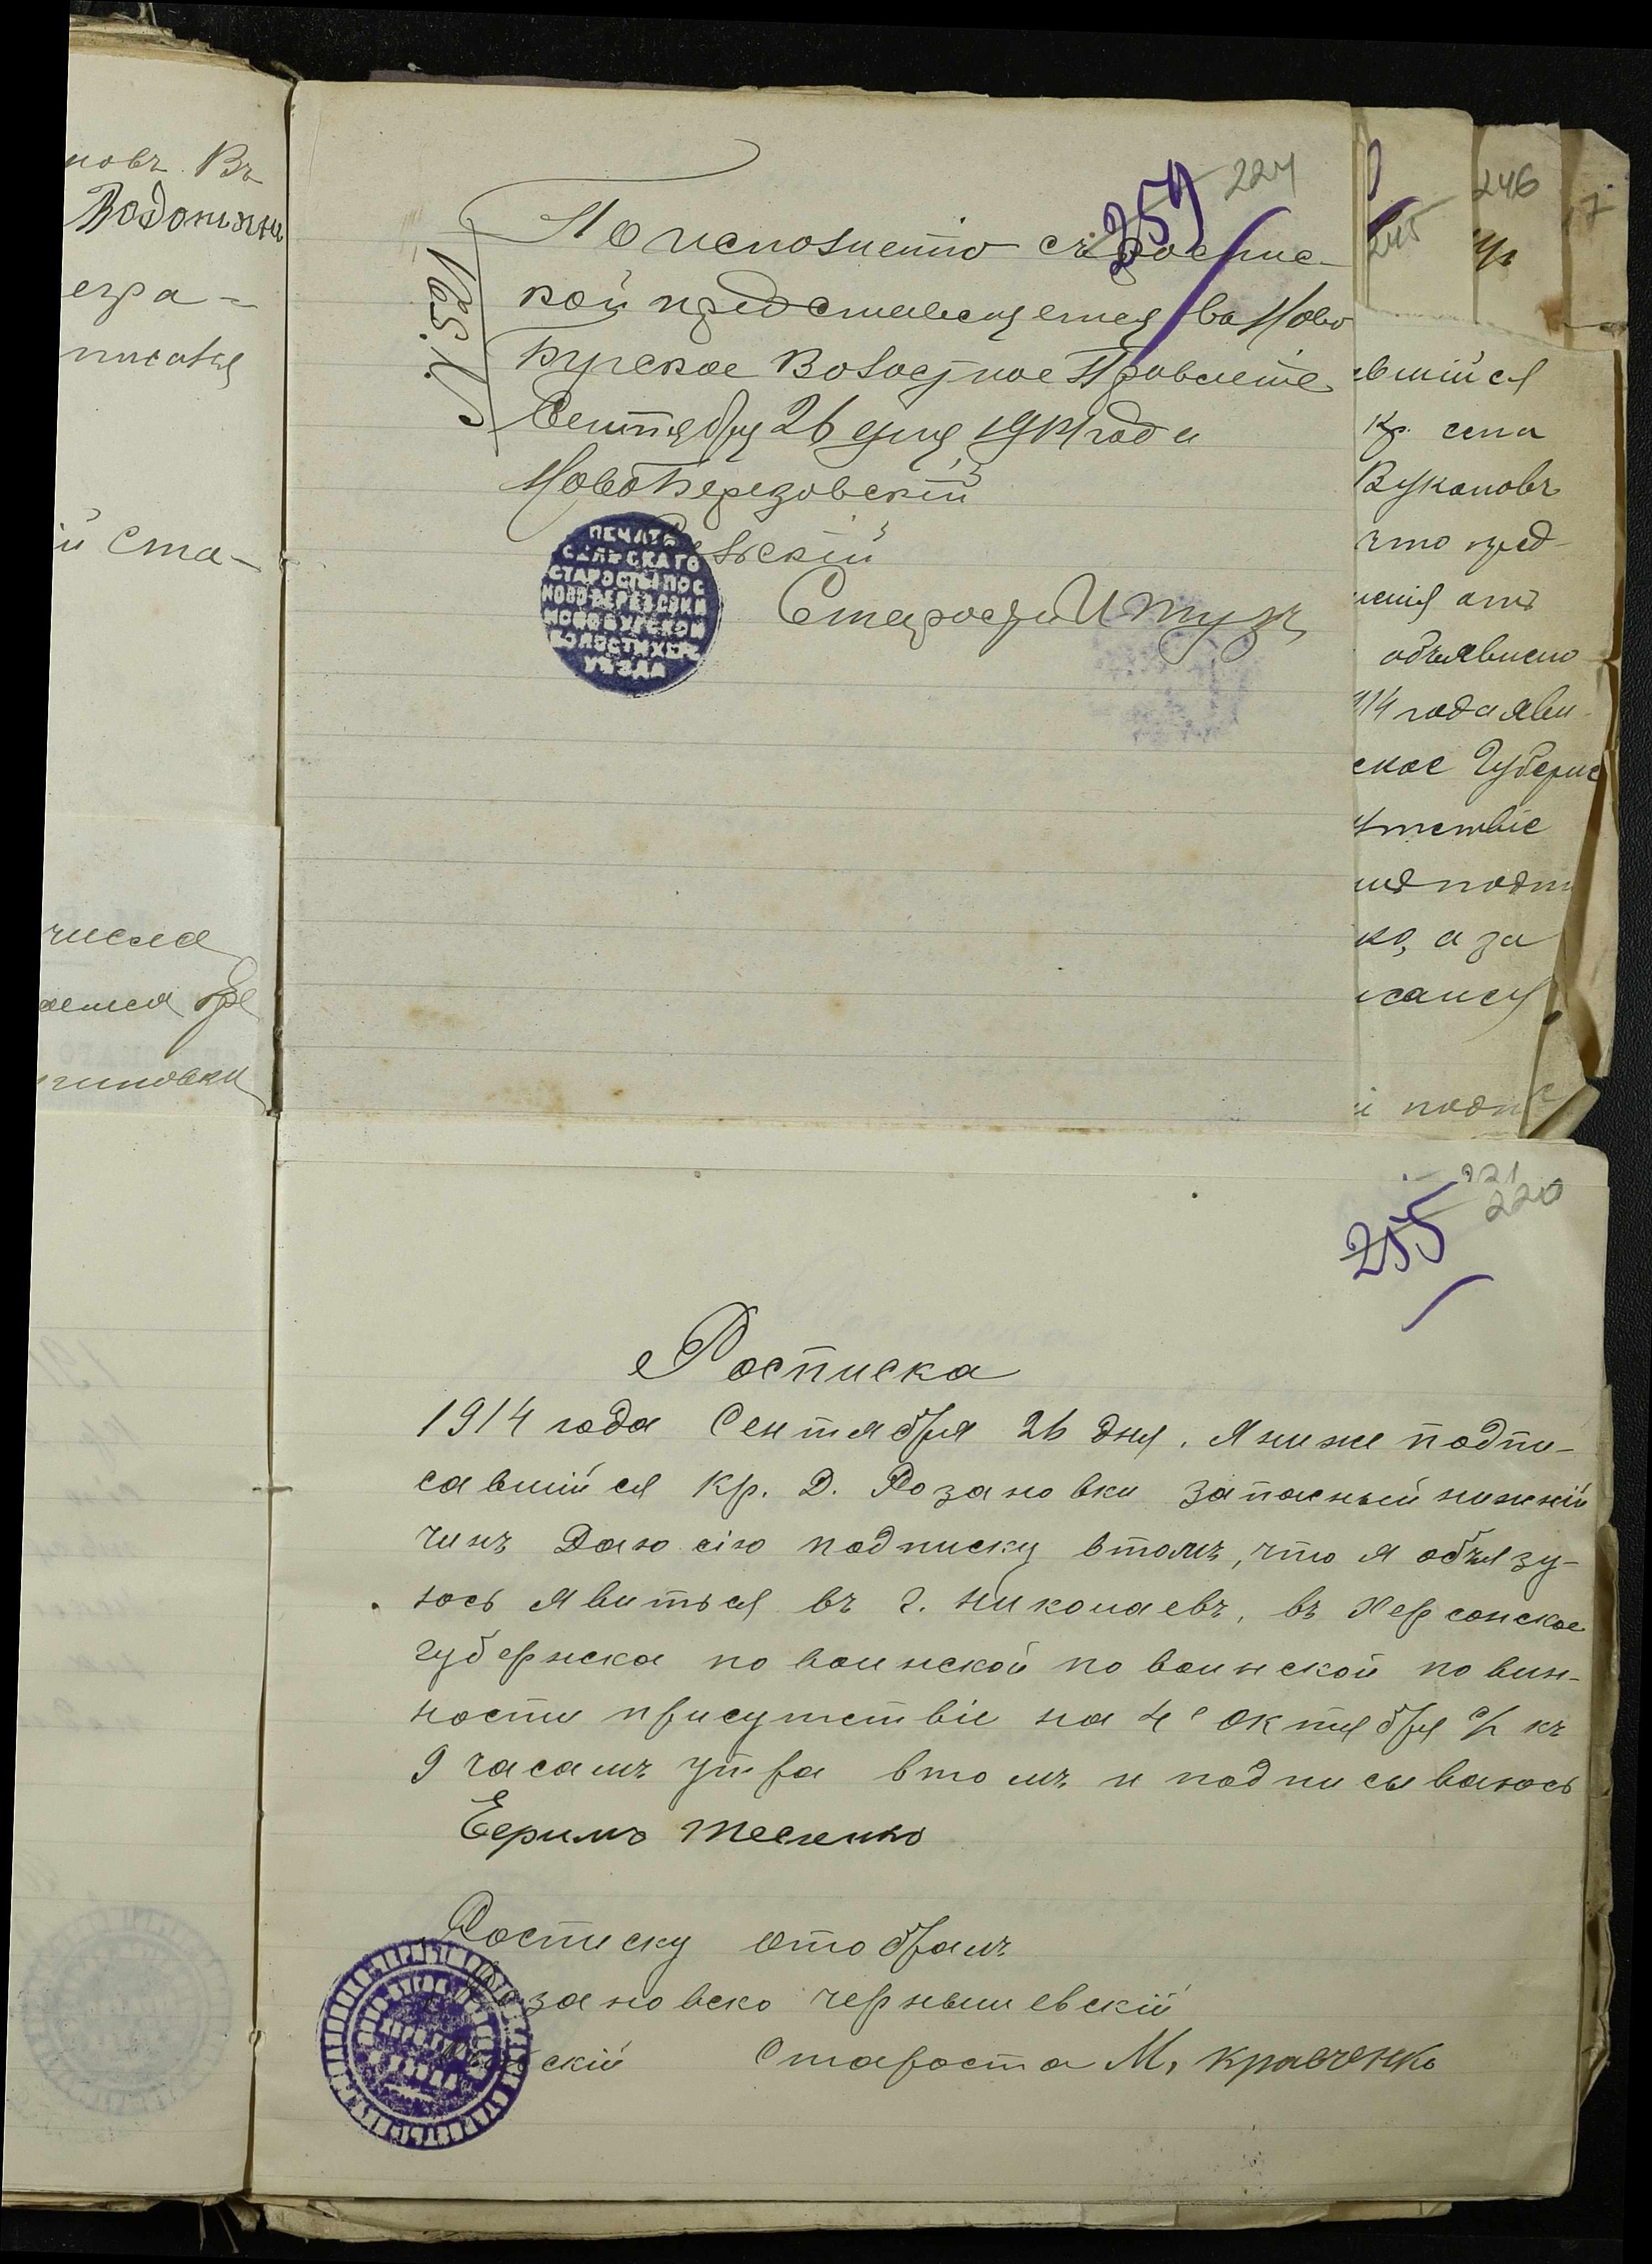 новъ Въ
егра-
й Ста-
числа
гиновки
259 224
По исполнетю съ роспис-
кой представляцетися во Ново
Бугское Волостное Правлетие
Сентября 26 дня 1914 года
№ 591
НовоБерезовскій
льскій
Староста
ПЕЧАТЬ
СЕЛЬСКАГО
СТАРОСТЫ ПОС
НОВО-БЕРЕЗОВКИ
НОВОБУГСКОЙ
ВОЛОСТИ ХЕР.
УѢЗДА
246
245
вшійся
Кр. села
Вукановъ
что пред-
ления отъ
объявлено
914 года яви-
ское Губернс
утствіе
ко, а за
й подп
221
220
255
Росписка
1914 года Сентября 26 дня. Я ниже подпи-
савшийся Кр. Д. Розановки запасный нижній
чинъ Даю сію подписку втомъ, что я обязу-
юсь явиться въ г. Николаевъ, въ Херсонское
губернска по воинской по воинской повин-
ности присутствіе на 4е октября с/г къ
9 часамъ утра втомъ и подписываюсь
Росписку отобралъ
Розановско чернышевскій
скій Староста М, кравченко